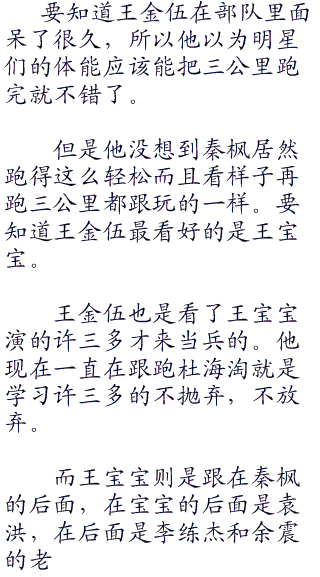 要知道王金伍在部队里面
呆了很久，所以他以为明星
们的体能应该能把三公里跑
完就不错了。
但是他没想到秦枫居然
跑得这么轻松而且看样子再
跑三公里都跟玩的一样。要
知道王金伍最看好的是王宝
宝。
王金伍也是看了王宝宝
演的许三多才来当兵的。他
现在一直在跟跑杜海淘就是
学习许三多的不抛弃，不放
弃。
而王宝宝则是跟在秦枫
的后面，在宝宝的后面是袁
洪，在后面是李练杰和余震
的老